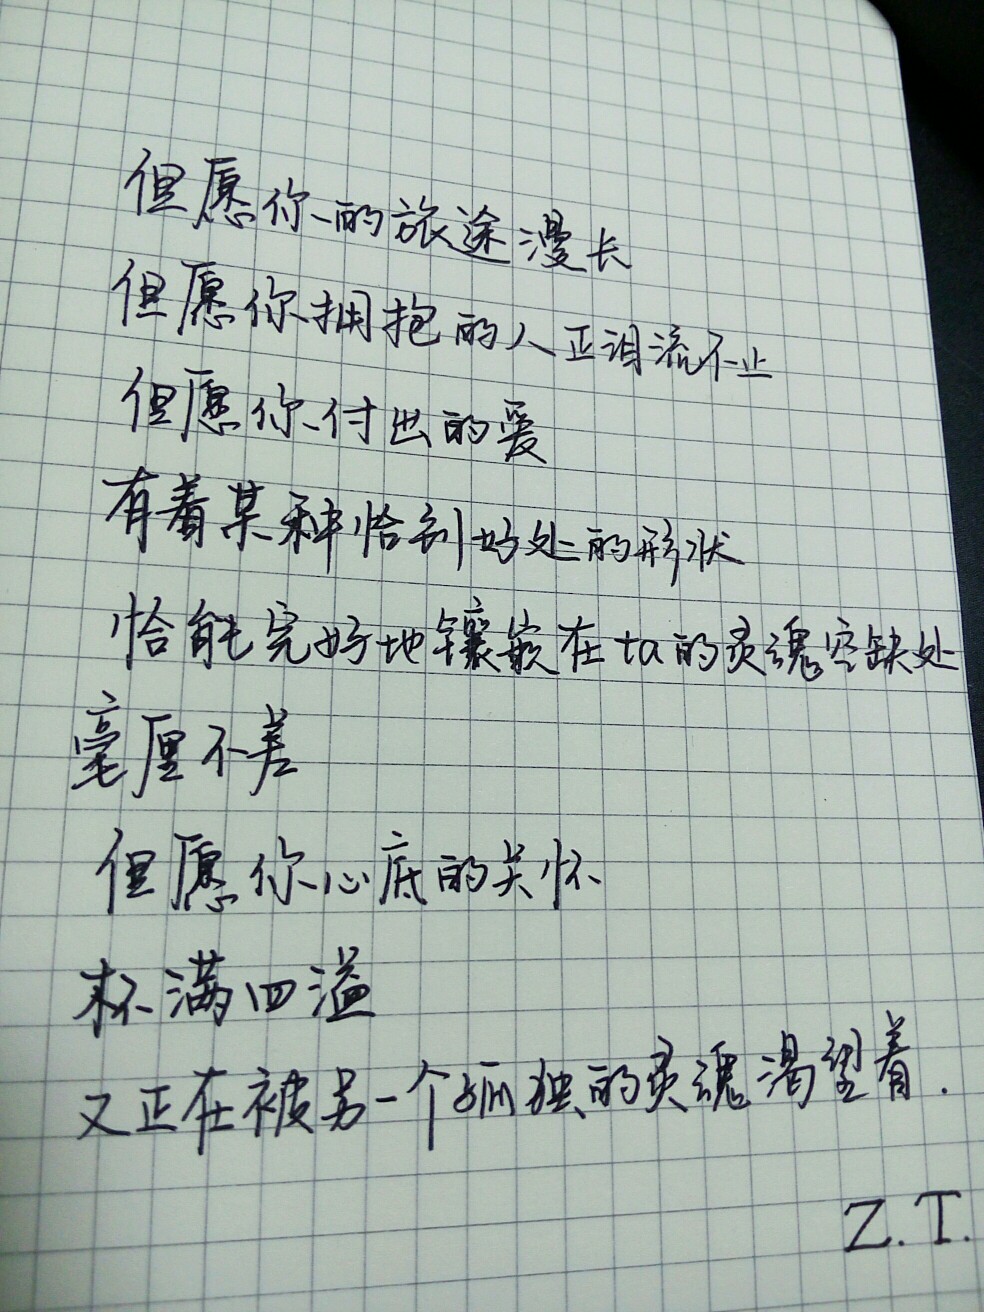 但愿你的旅途漫长
但愿你拥抱的人正泪流不止
但愿你付出的爱
有着某种恰到好处的形状
恰能完好地镶嵌在ta的灵魂空缺处
毫厘不差
但愿你心底的关怀
杯满四溢
又正在被另一个孤独的灵魂渴望着.
Z.T.